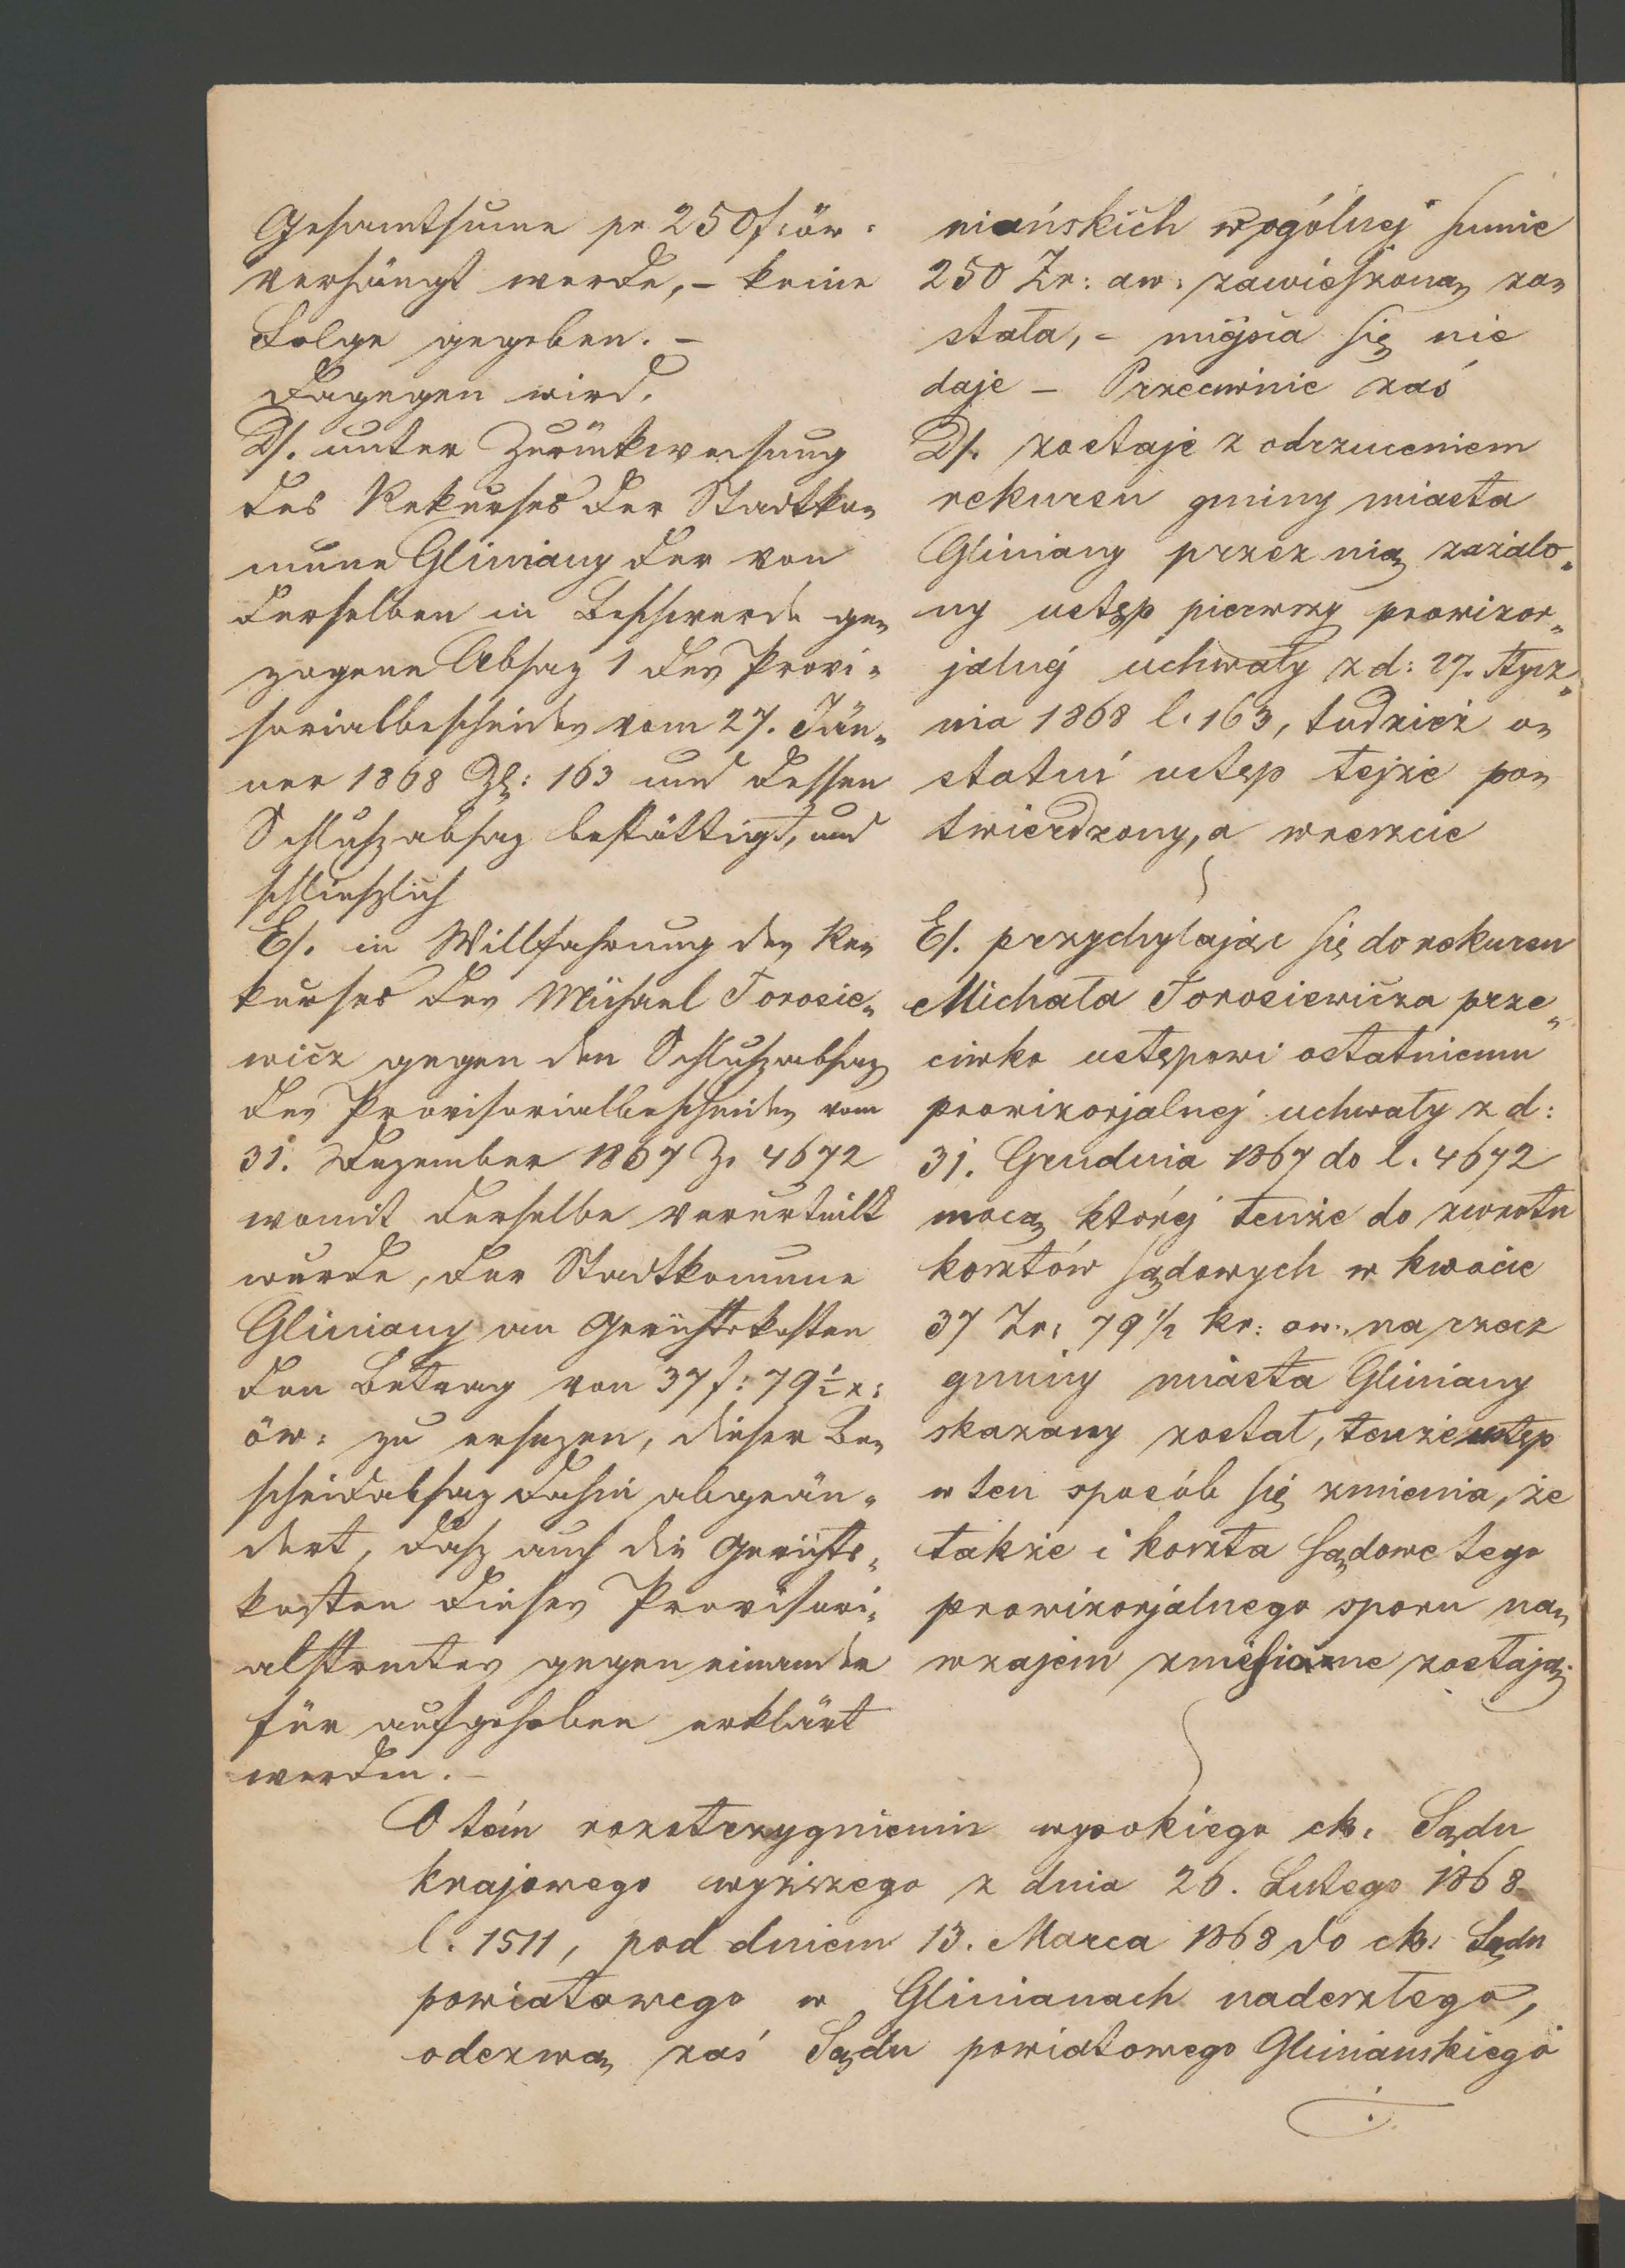 Gesamtsume pr 250 f: öw:
verhängt werde, – keine
Folge gegeben. –
Dagegen wird.
D/. unter Zurückweisung
des Rekurses der Stadtko„
mune Gliniany der von
derselben in Beschwerde ge„
zogene Absaz 1 des Provi„
sorialbescheides vom 27. Jän„
ner 1868 Zl: 163 und dessen
Schlußabsaz bestättigt, und
schließlich
E/. in Willfahrung des Re„
kurses des Michael Torosie„
wicz gegen den Schlußabsaz
des Provisorialbescheides vom
31. Dezember 1867 Z. 4672
womit derselbe verurteilt
wurde, der Stadtkomune
Gliniany an Gerichtskosten
den Betrag von 37 f: 79 ½ x:
öw: zu ersezen, dieser Be„
scheidabsaz dahin abgeän„
dert, daß auch die Gerichts„
kosten dieses Provisori„
alstreites gegen einander
für aufgehoben erklärt
werden. –
niańskich wogólnej sumie
250 Zr: aw: zawieszoną zo„
stała, – miejsca się nie
daje – Przeciwnie zaś
D/. zostaje z odrzuceniem
rekursu gminy miasta
Gliniany przez nią zażalo„
ny ustęp pierwszy prowizor„
jalnéj uchwały z d: 27. Stycz„
nia 1868 l. 163, tudzież o„
statni ustęp tejże po„
twierdzony, a wreszcie
E/. przychylając się do rekursu
Michała Torosiewicza prze„
ciwko ustępowi ostatniemu
prowizorjalnej uchwały z d:
31. Grudnia 1867 do l. 4672
mocą któréj tenże do zwrotu
kosztów sądowych w kwocie
37 Zr: 79 ½ kr: aw: na rzecz
gminy miasta Gliniany
skazany został, tenże ustęp
w ten sposób się zmienia, że
także i koszta sądowe tego
prowizorjalnego sporu na„
wzajem zniesione zostają.
O tém rozstrzygnieniu wysokiego ck. Sądu
krajowego wyższego z dnia 26. Lutego 1868
l. 1511, pod dniem 13. Marca 1868 do ck: Sądu
powiatowego w Glinianach nadeszłego,
odezwą zaś Sądu powiatowego Gliniańskiego